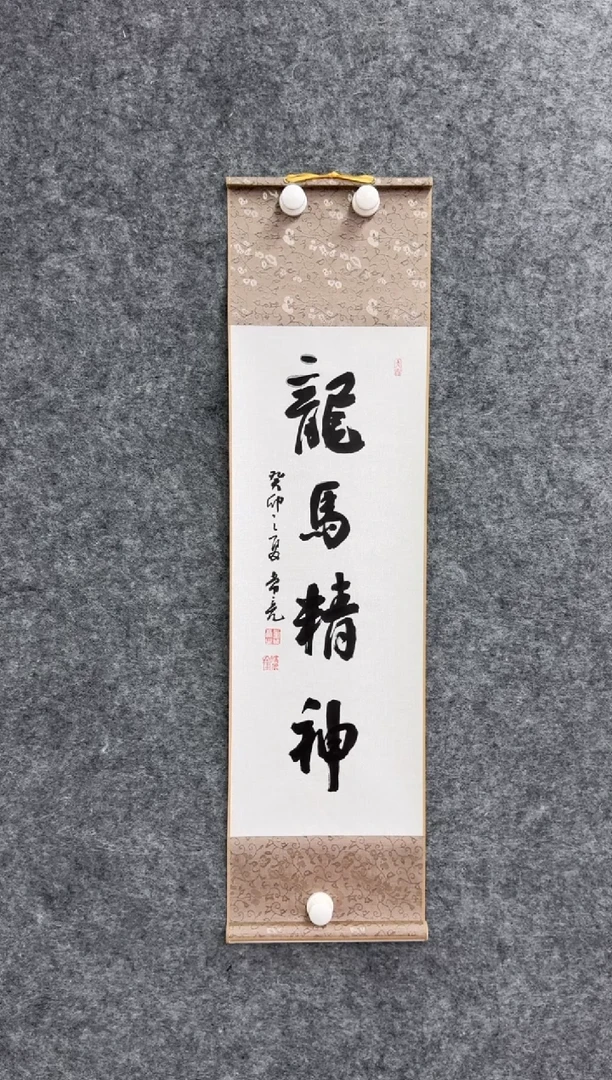 龍馬精神
癸卯之夏